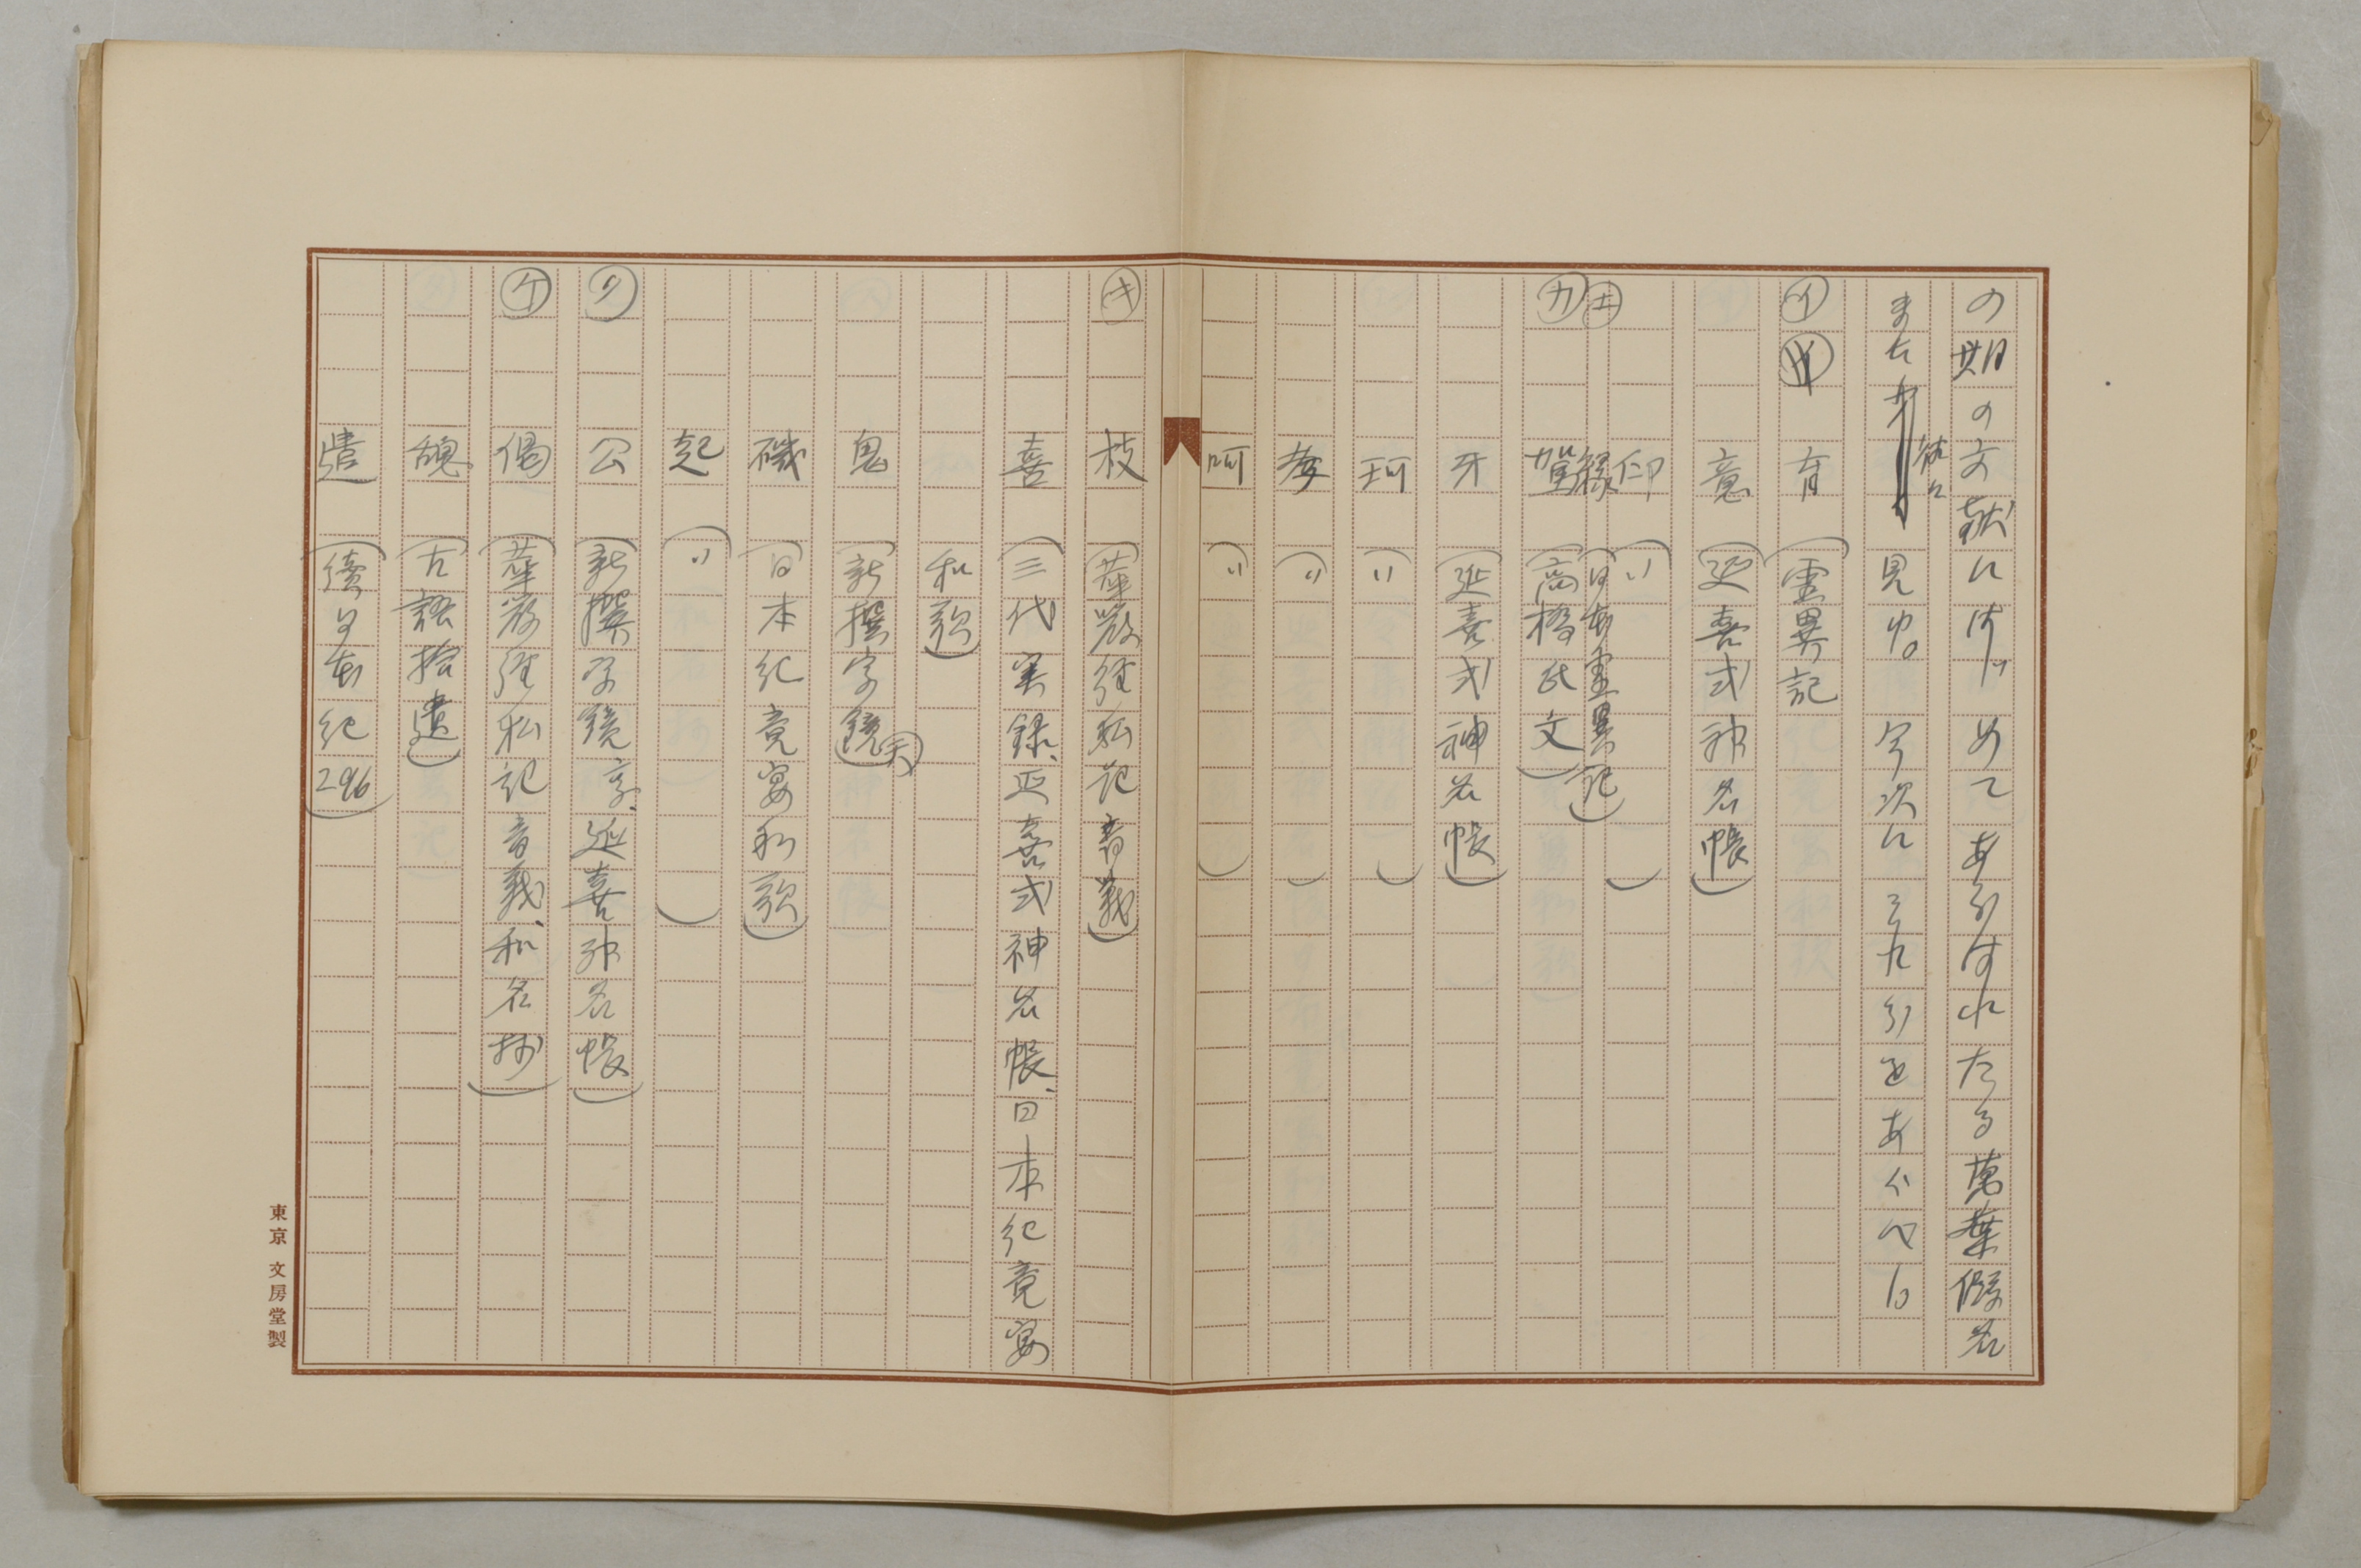 の期の文献にはじめてあらはれたる萬葉假名
また新に見ゆ。今次に之れらをあぐべし
イ 育 (霊異記
意 (延喜式神名帳)
仰 (〃)
エ 縁 (日本霊異記)
カ 賀 (高橋氏文)
牙 (延喜式神名帳)
珂 (〃)
孝 (〃)
呵 (〃)
キ 枝 (華厳経私記音義)
喜 (三代実録、延喜式神名帳、日本紀竟宴
和歌)
鬼 (新撰字鏡 天)
磯 (日本紀竟宴和歌)
起 (〃)
ク 公 (新撰字鏡享、延喜神名帳)
ケ 偈 (華厳経私記音義、和名抄)
(古語拾遺)
遣 (續日本紀 296)
東京 文房堂製